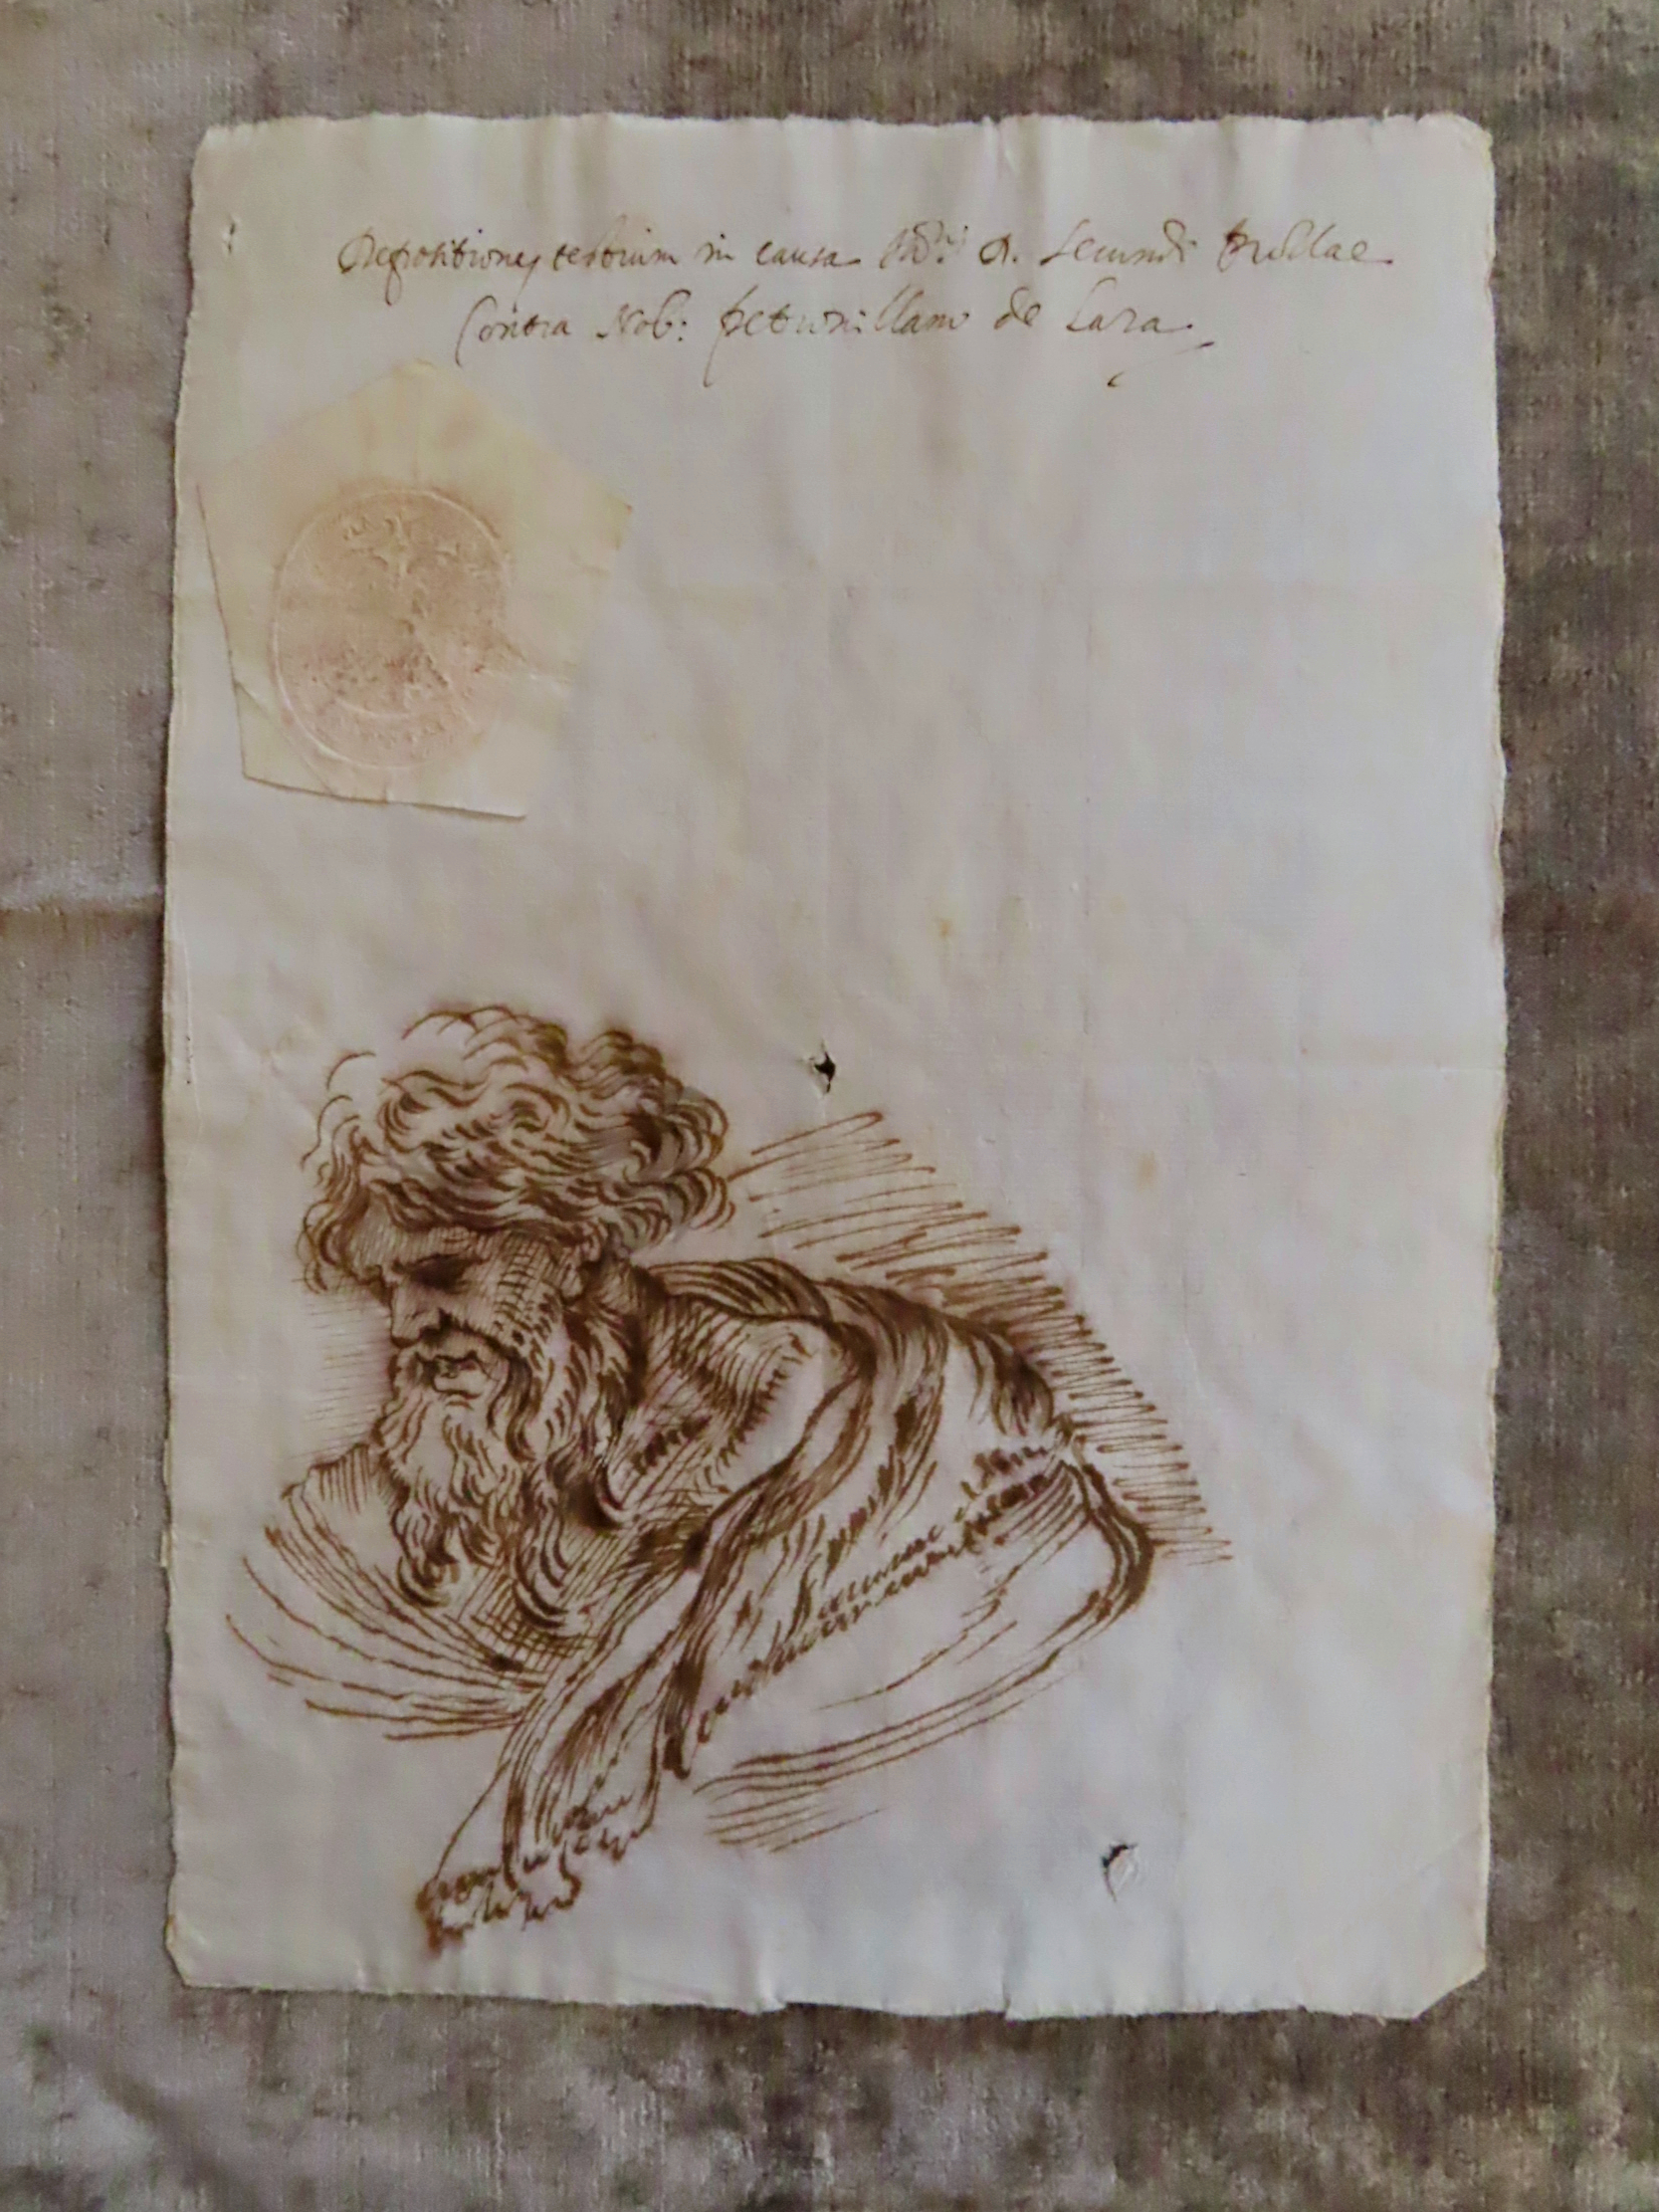 Depositiones testium in causa A. Secundi
Contra Nob: petronillam de Lara